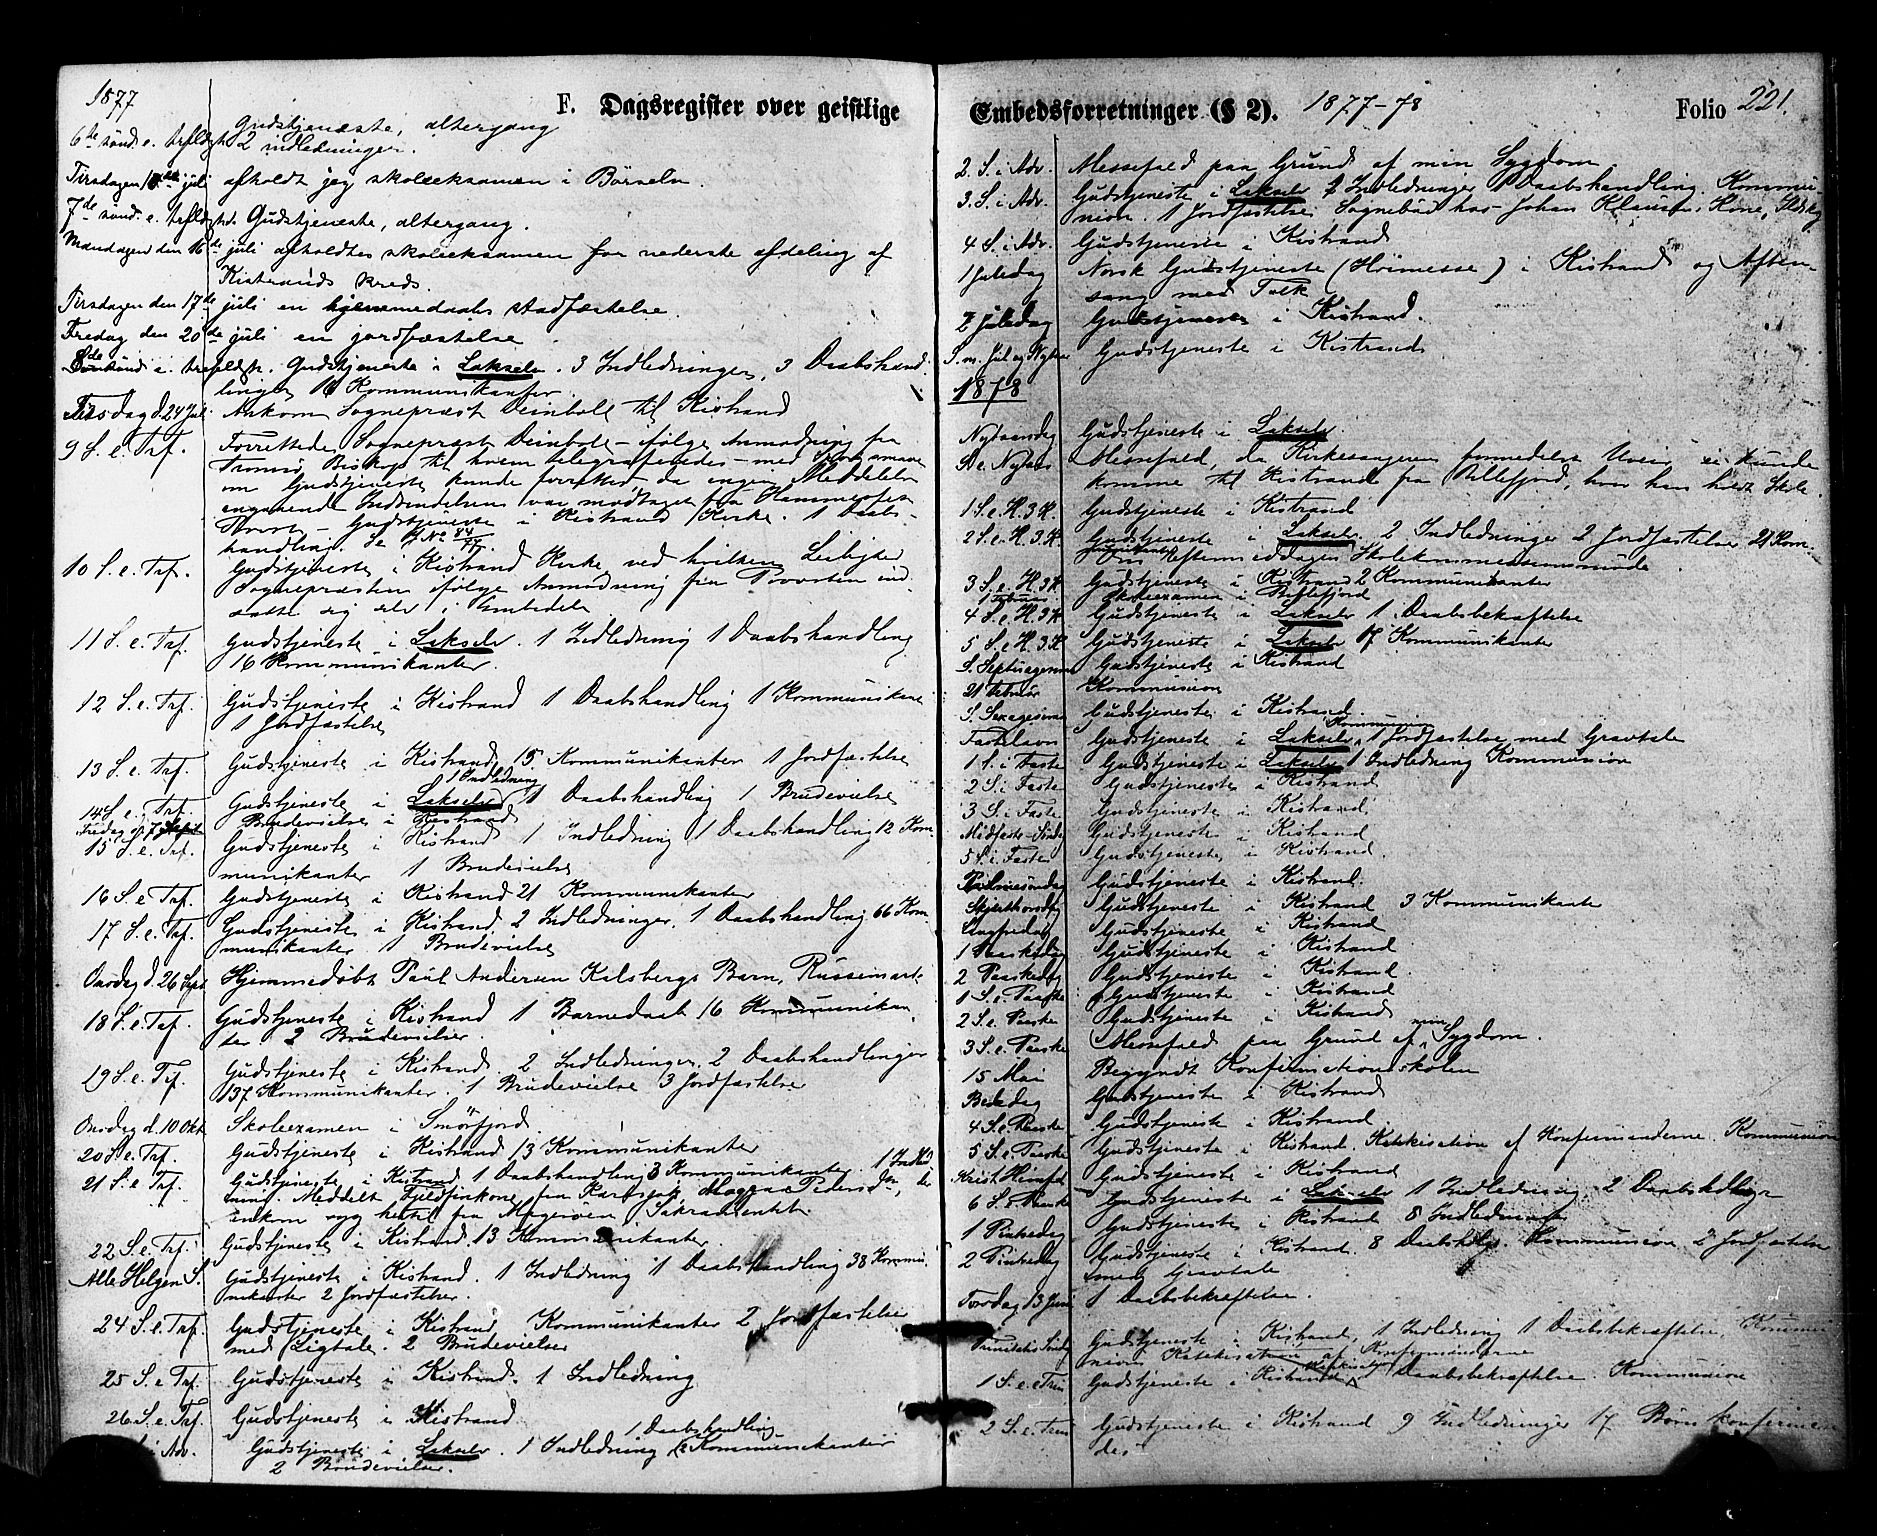 1877
F. Dagsregister over geistlige
6te sönd. e. trefldgh. Gudstjeneste, altergang
2 indledninger.
Tirsdagen 10de juli afholdt jeg skoleeksamen i Börselv.
7de sönd. e. trefldgh. Gudstjeneste, altergang.
Mandagen den 16de juli afholdtes skoleeksamen for nederste afdeling af
Kistrands kreds.
Tirsdagen den 17de juli en hjemmedaabs stadfæstelse.
Fredag den 20de juli en jordfæstelse
8de sönd. e. trefoldgh. Gudstjeneste i Lakselv. 3 Indledninger, 3 Daabshand-
linger Kommunikanter.
Tirsdag d. 24 Jul. Ankom Sognepræst Deinboll til Kistrand
9 S. e. Tref. Forrettede Sognepræst Deinboll - ifølge Anmodning fra
Tromsø Biskop til hvem telegraferedes - med
om Gudstjeneste kunde forrettes, da ingen Meddelelse
angaaende Indsendelsen var modtaget fra Hammerfest
Provsti - Gudstjeneste i Kistrand Kirke. 1 Daabs-
handling. Se J No 84/77.
10 S. e. Tref. Gudstjeneste i Kistrand Kirke ved hvilken Leilighed
Sognepræsten ifølge Anmodning fra Provsten ind-
satte sig selv i Embedet
11 S. e. Tref. Gudstjeneste i Lakselv. 1 Indledning 1 Daabshandling
16 Kommunikanter.
12 S. e. Tref. Gudstjeneste i Kistrand 1 Daabshandling 1 Kommunikant
1 Jordfæstelse
13 S. e. Tref. Gudstjeneste i Kistrand, 15 Kommunikanter 1 Jordfæstelse
1 Indledning
14 S. e. Tref. Gudstjeneste i Lakselv 1 Daabshandling 1 Brudevielse
Fredag d. 7 Sept Brudevielse i Kistrand
15 S. e. Tref. Gudstjeneste i Kistrand 1 Indledning 1 Daabshandling 12 Kom
munikanter 1 Brudevielse
16 S. e. Tref. Gudstjeneste i Kistrand 21 Kommunikanter
17 S. e. Tref. Gudstjeneste i Kistrand. 2 Indledninger. 1 Daabshandling 66 Kom
munikanter 1 Brudevielse
Onsdag d. 26 Sept Hjemmedøbt Paul Andersen Kalsbergs Barn, Russemark
18 S. e. Tref. Gudstjeneste i Kistrand 1 Barnedaab 16 Kommunikan
ter 2 Brudevielser.
19 S. e. Tref. Gudstjeneste i Kistrand. 2 Indledninger. 2 Daabshandlinger
137 Kommunikanter. 1 Brudevielse 3 Jordfæstelser
Onsdag d. 10 Okt Skoleexamen i Smörfjord.
20 S. e. Tref. Gudstjeneste i Kistrand 13 Kommunikanter
21 S. e. Tref. Gudstjeneste i Kistrand 1 Daabshandling 3 Kommunikanter 1 Indled
ning. Meddelt Fjeldfinkone fra Karasjok, Magga Pedersdtr., der
ankom syg hertil fra Magerøen, Sakramentet.
22 S. e. Tref. Gudstjeneste i Kistrand. 13 Kommunikanter.
Alle Helgen S. Gudstjeneste i Kistrand. 1 Indledning 1 Daabshandling 38 Kommu-
nikanter 2 Jordfæstelser.
24 S. e. Tref. Gudstjeneste i Kistrand Kommunikanter 2 Jordfæstelse
med Ligtale. 2 Brudevielser
25 S. e. Tref. Gudstjeneste i Kistrand. 1 Indledning
26 S. e. Tref. Gudstjeneste i Kistrand
1 Daabshandling
i Adv. Gudstjeneste i Lakselv. 1 Indledning Kommunikanter
2 Brudevielser.
Embedsforretninger (§ 2). 1877-78 Folio 221.
2. S. i Adv. Messefald paa Grund af min Sygdom
3. S. i Adv. Gudstjeneste i Lakselv 2 Indledninger 1 Daabshandling. Kommu-
nion. 1 Jordfæstelse Sognebud hos Johan Klausens Kone,
4 S. i Adv. Gudstjeneste i Kistrand
1 Juledag Norsk Gudstjeneste (Høimesse) i Kistrand og Aften-
sang med Tolk
2 Juledag Gudstjeneste i Kistrand.
S. m. Jul og Nytaar Gudstjeneste i Kistrand
1878
Nytaarsdag Gudstjeneste i Lakselv.
S. e. Nytaar Messefald, da Kirkesangeren formedelst Uveir ei kunde
komme til Kistrand fra Billefjord, hvor han holdt Skole.
1 S. e. H. 3 K. Gudstjeneste i Kistrand
2 S. e. H. 3 K. Gudstjeneste i Lakselv. 2 Indledninger 2 Jordfæstelser 21 Kom-
munikanter Om Eftermiddagen Skolekommissionsmøde
3 S. e. H. 3 K. Gudstjeneste i Kistrand 2 Kommunikanter
1 Februar Skoleexamen i Billefjord
4 S. e. H. 3 K Gudstjeneste i Lakselv 1 Daabsbekræftelse
5 S. e. H. 3 K Gudstjeneste i Lakselv 17 Kommunikanter
S. Septuagesima Gudstjeneste i Kistrand
21 Februar Kommunion
S. Sexagesima Gudstjeneste i Kistrand.
Kommunion
Fastelavn Gudstjeneste i Lakselv, 1 Jordfæstelse med Gravtale
1 S. i Faste Gudstjeneste i Lakselv 1 Indledning Kommunion
2 S. i Faste Gudstjeneste i Kistrand
3 S. i Faste Gudstjeneste i Kistrand
Midfaste-Söndag Gudstjeneste i Kistrand
5 S. i Faste Gudstjeneste i Kistrand.
Palmesöndag Gudstjeneste i Kistrand.
Skjærthorsdag Gudstjeneste i Kistrand 3 Kommunikanter
Langfredag Gudstjeneste i Kistrand
1 Paaskedag Gudstjeneste i Kistrand
2 Paaskedag Gudstjeneste i Kistrand.
1 S. e. Paaske Gudstjeneste i Kistrand
2 S. e. Paaske Gudstjeneste i Kistrand
3 S. e. Paaske Messefald paa Grund af min Sygdom.
15 Mai Begyndt Konfirmationsskolen
Bededag Gudstjeneste i Kistrand
4 S. e. Paaske Gudstjeneste i Kistrand
5 S. e. Paaske Gudstjeneste i Kistrand Katekisation af Konfirmanderne Kommunion
Krist Himmelf. Gudstjeneste i Kistrand
6 S. e. Paaske Gudstjeneste i Lakselv 1 Indledning 2 Daabshdlnger
1 Pintsedag Gudstjeneste i Kistrand 8 Indledninger
2 Pintsedag Gudstjeneste i Kistrand. 8 Daabshdlgr. Kommunion 2 Jordfæstelser
med Gravtale
Torsdag 13 Juni 1 Daabsbekræftelse.
Trinitatis Söndag Gudstjeneste i Kistrand, 1 Indledning 1 Daabsbekræftelse, Kommu
nion Katekisation af Konfirmanderne
Katekisation
1 S. e. Trin Gudstjeneste i Kistrand 1 Daabsbekræftelse Kommunion
2 S. e. Trin Gudstjeneste i Kistrand 9 Indledninger 17 Børn konfirmere
des